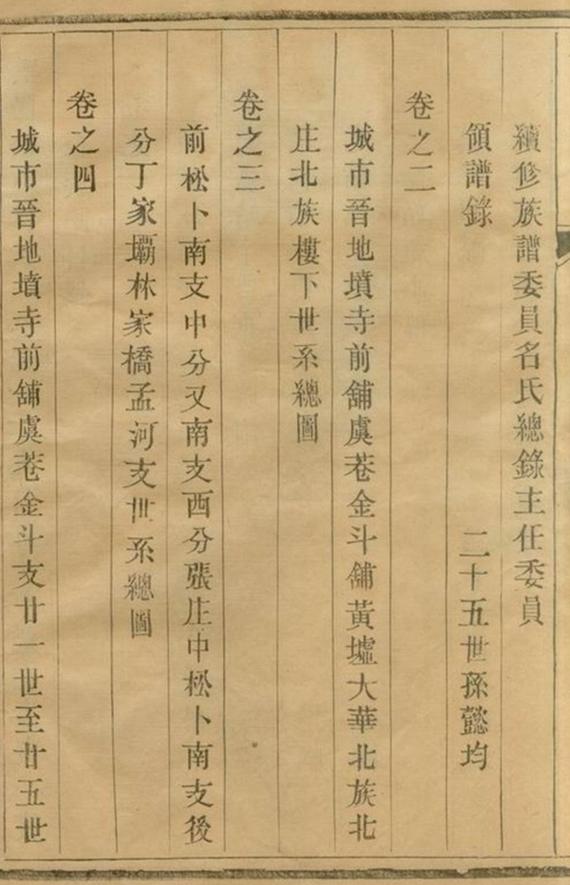 續修族譜委員名氏總錄主任委員
領譜錄 二十五世孫懿均
卷之二
城市晉地墳寺前舖虞巷金斗舖黃墟大華北族北
庄北族樓下世系總圖
卷之三
前松卜南支中分又南支西分張庄中松卜南支後
分丁家壩林家橋孟河支世系總圖
卷之四
城市晉地墳寺前舖虞巷金斗支廿一世至廿五世